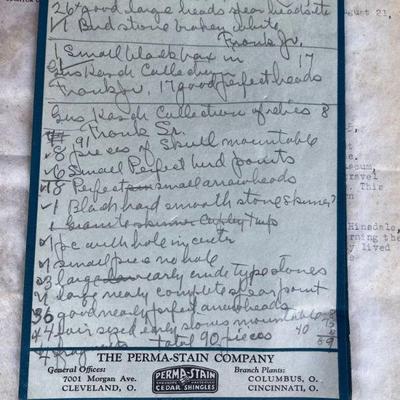 26 good large heads spear heads etc
1 Bird stone broken white
Frank Jr.
1 Small black box in 17
Gus Karsh Collection
Frank Jr. 17 good perfect heads
Gus Karsh Collection of relics 8
Frank Sr.
91
8 pieces of skull mountable
6 Small Perfect bird points
18 Perfect small arrowheads
1 Black hard smooth stone skinner?
1 Granite
1 pc with hole in centr
1 small piece no hole
3 large early crude type stones
2 long nearly complete spear point
36 good nearly perfect arrowheads
4 fair sized early stones mountable
4 total 90 pieces
40
THE PERMA-STAIN COMPANY
General Offices:
7001 Morgan Ave.
CLEVELAND, O.
PERMA-STAIN
CEDAR SHINGLES
Branch Plants:
COLUMBUS, O.
CINCINNATI, O.
ugust 21,
travel
This
Hinsdale,
rning the
y lived